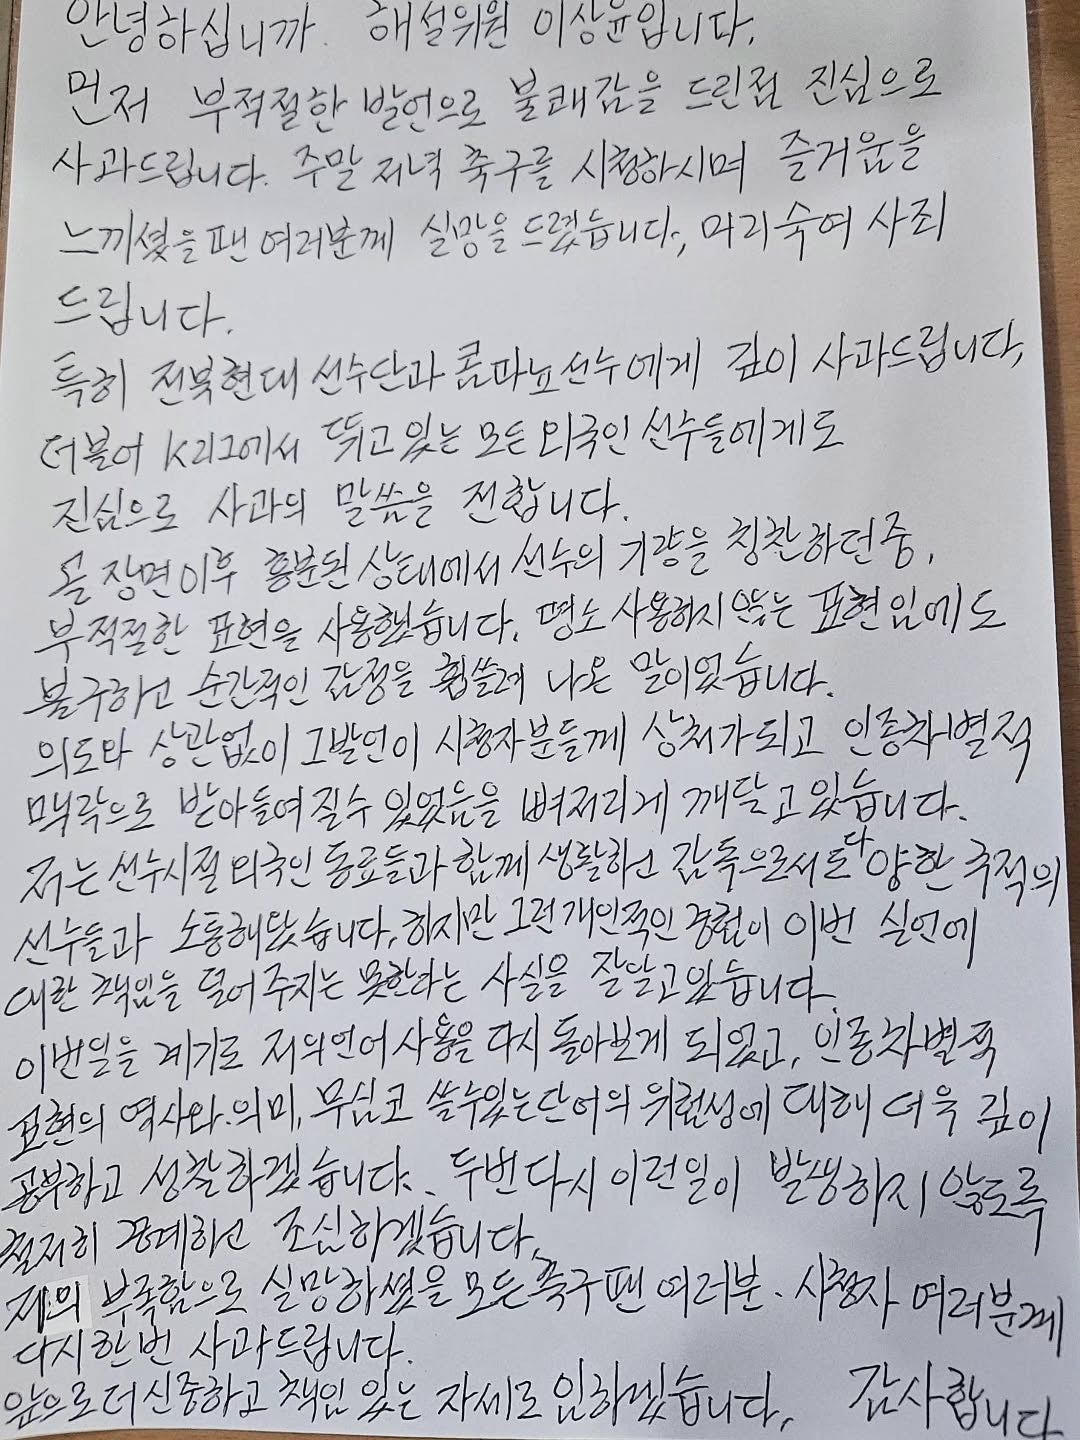 안녕하십니까. 해설위원 이상윤입니다.
먼저 부적절한 발언으로 불쾌감을 드린점 진심으로
사과드립니다. 주말 저녁 축구를 시청하시며 즐거움을
느끼셨을팬 여러분께 실망을 드렸습니다, 머리숙여 사죄
드립니다.
특히 전북현대 선수단과 콤파뇨선수에게 깊이 사과드립니다,
더불어 K리그에서 뛰고있는 모든 외국인 선수들에게도
진심으로 사과의 말씀을 전합니다.
골 장면이후 흥분된 상태에서 선수의 기량을 칭찬하던중,
부적절한 표현을 사용했습니다. 평소 사용하지않는 표현임에도
불구하고 순간적인 감정을 휩쓸려 나온 말이었습니다.
의도와 상관없이 그발언이 시청자분들께 상처가되고 인종차별적
맥락으로 받아들여질수 있었음을 뼈저리게 깨닫고있습니다.
저는 선수시절 외국인 동료들과 함께 생활하고 감독으로서도 다양한 국적의
선수들과 소통해왔습니다, 하지만 그런개인적인 경험이 이번 실언에
대한 책임을 덜어주지는 못한다는 사실을 잘알고있습니다.
이번일을 계기로 저의언어사용을 다시 돌아보게 되었고, 인종차별적
표현의 역사와 의미, 무심코 쓸수있는단어의 위험성에 대해 더욱 깊이
공부하고 성찰하겠습니다. 두번다시 이런일이 발생하지 않도록
철저히 경계하고 조심하겠습니다,
저의 부족함으로 실망하셨을 모든 축구팬 여러분. 시청자 여러분께
다시한번 사과드립니다.
앞으로더신중하고 책임 있는 자세로 임하겠습니다, 감사합니다